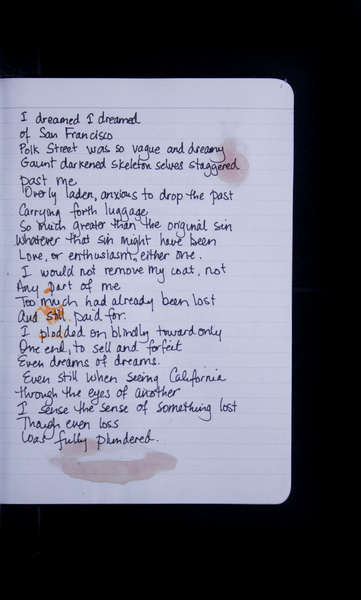 I dreamed I dreamed
of San Francisco
Polk Street was so vague and dreamy
Gaunt darkened skeleton selves staggered
past me
Overly laden, anxious to drop the past
Carrying forth luggage
So much greater than the original sin
Whatever that sin might have been
Love, or enthusiasm, either one.
I would not remove my coat, not
Any part of me
Too much had already been lost
And still paid for.
I plodded on blindly toward only
One end, to sell and forfeit
Even dreams of dreams.
Even still when seeing California
through the eyes of another
I sense the sense of something lost
Though even loss
Was fully plundered.